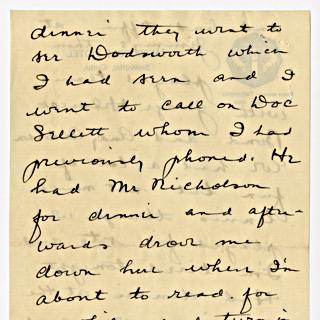 dinner they went to
see Dodsworth which
I had seen and I
went to call on Doc
Sellett whom I had
previously phoned. He
had Mr Nicholson
for dinner and after-
wards drove me
down here where I'm
about to read for